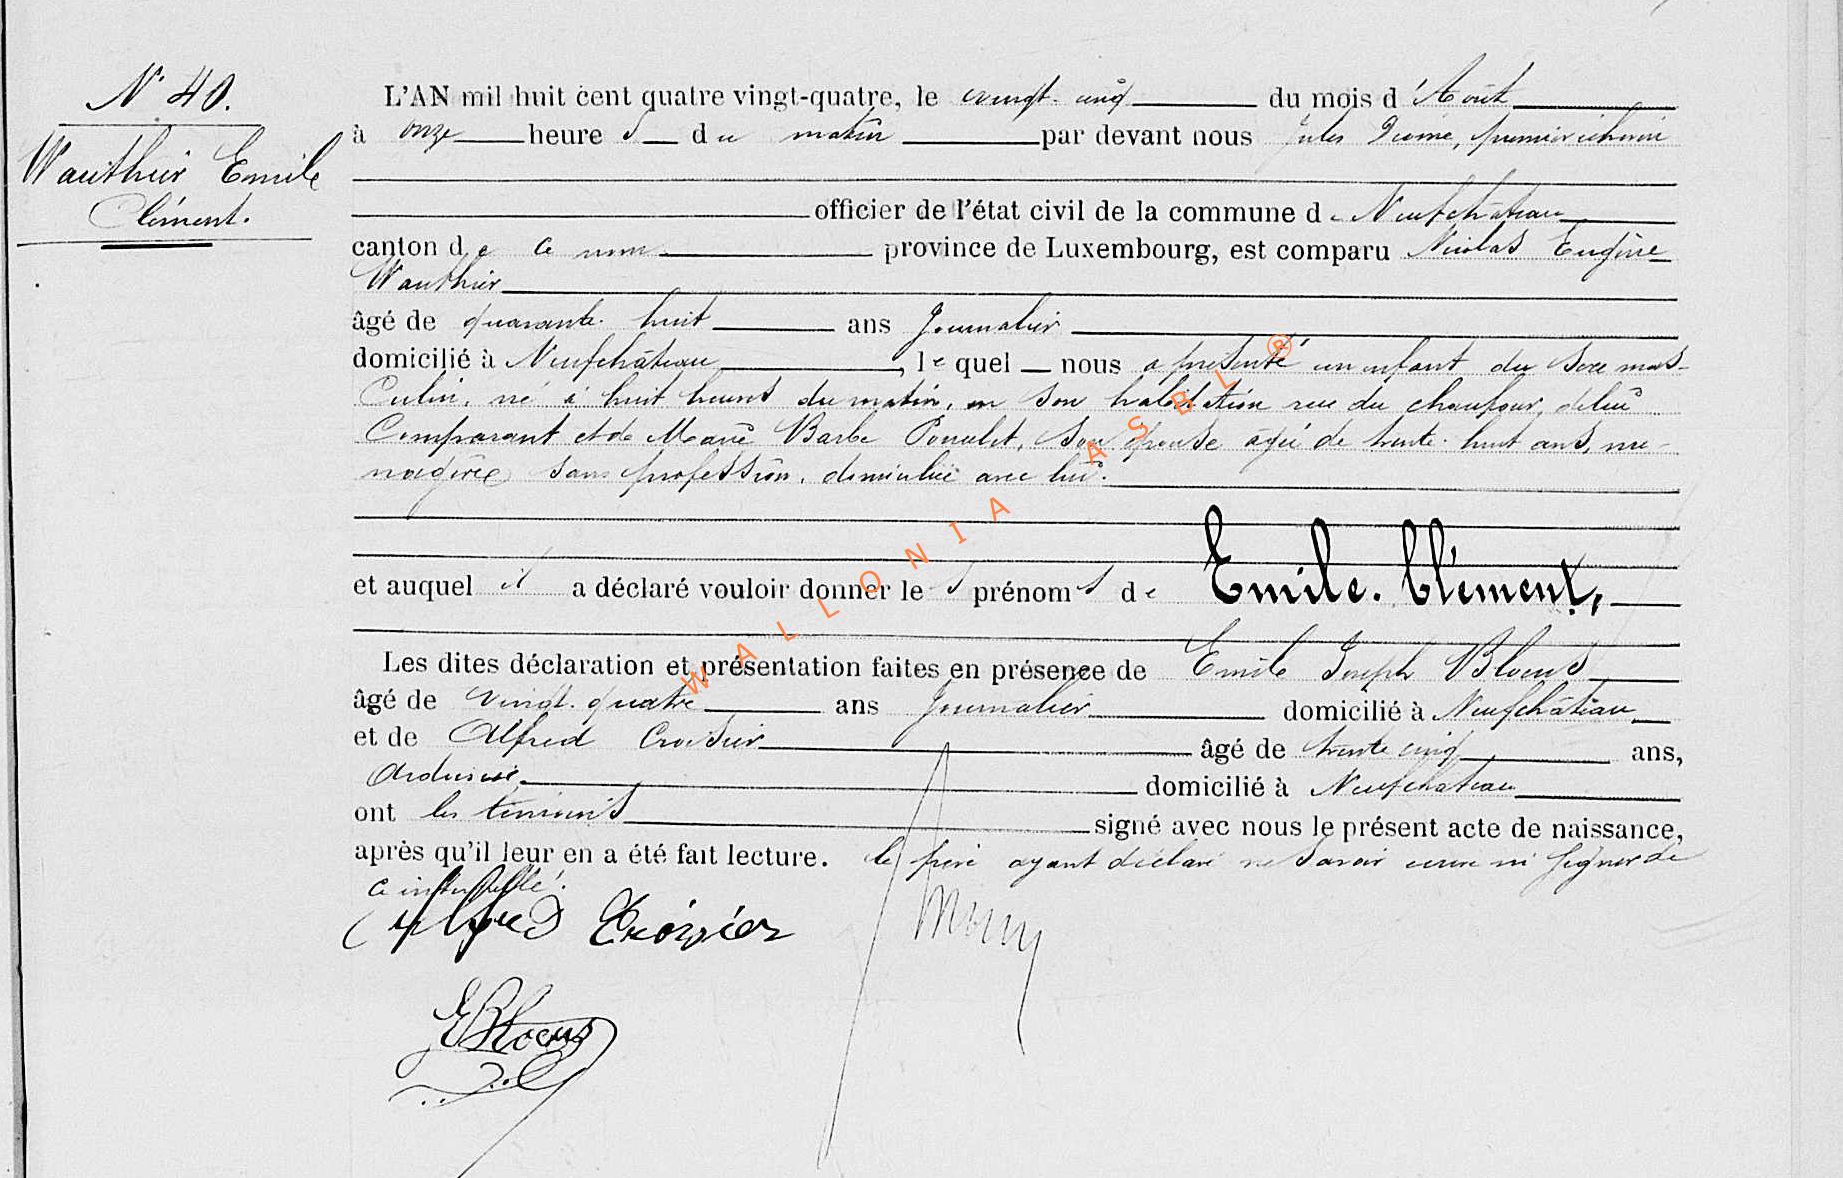 N° 40.
Wauthier Emile
Clément.
L'AN mil huit cent quatre vingt-quatre, le vingt-cinq du mois d'Août
à onze heures du matin par devant nous Jules premier échevin
officier de l'état civil de la commune de Neufchâteau
canton de ce nom province de Luxembourg, est comparu Nicolas Eugène
Wauthier
âgé de quarante-huit ans Journalier
domicilié à Neufchâteau, lequel nous a présenté un enfant du sexe mas-
culin, né à huit heures du matin, en son habitation rue du chaufour, de lui
Comparant et de Marie Barbe son épouse âgée de trente-huit ans, mé-
nagère sans profession, domiciliée avec lui.
et auquel il a déclaré vouloir donner les prénoms de Emile-Clément,
Les dites déclaration et présentation faites en présence de Emile Joseph Blocus
âgé de vingt-quatre ans Journalier domicilié à Neufchâteau
et de Alfred Croisier âgé de trente cinq ans,
Ardoisier domicilié à Neufchâteau
ont les témoins signé avec nous le présent acte de naissance,
après qu'il leur en a été fait lecture. le père ayant déclaré ne savoir écrire ni signer de
ce interpellé.
Alfred Croisier
EBlocus
WALLONIA ASBL ®